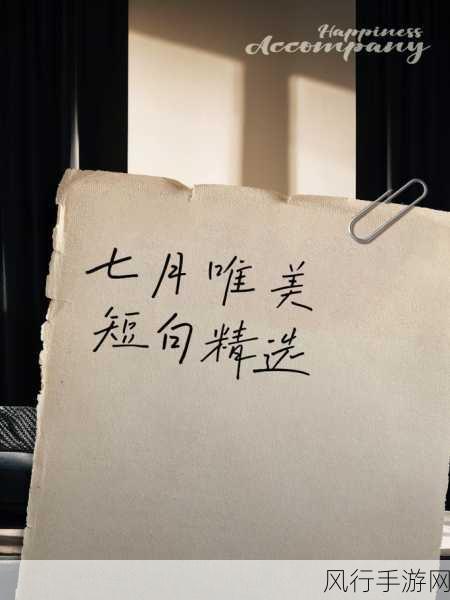 Happiness
Accompany
七月唯美
短句精选
风行手游网